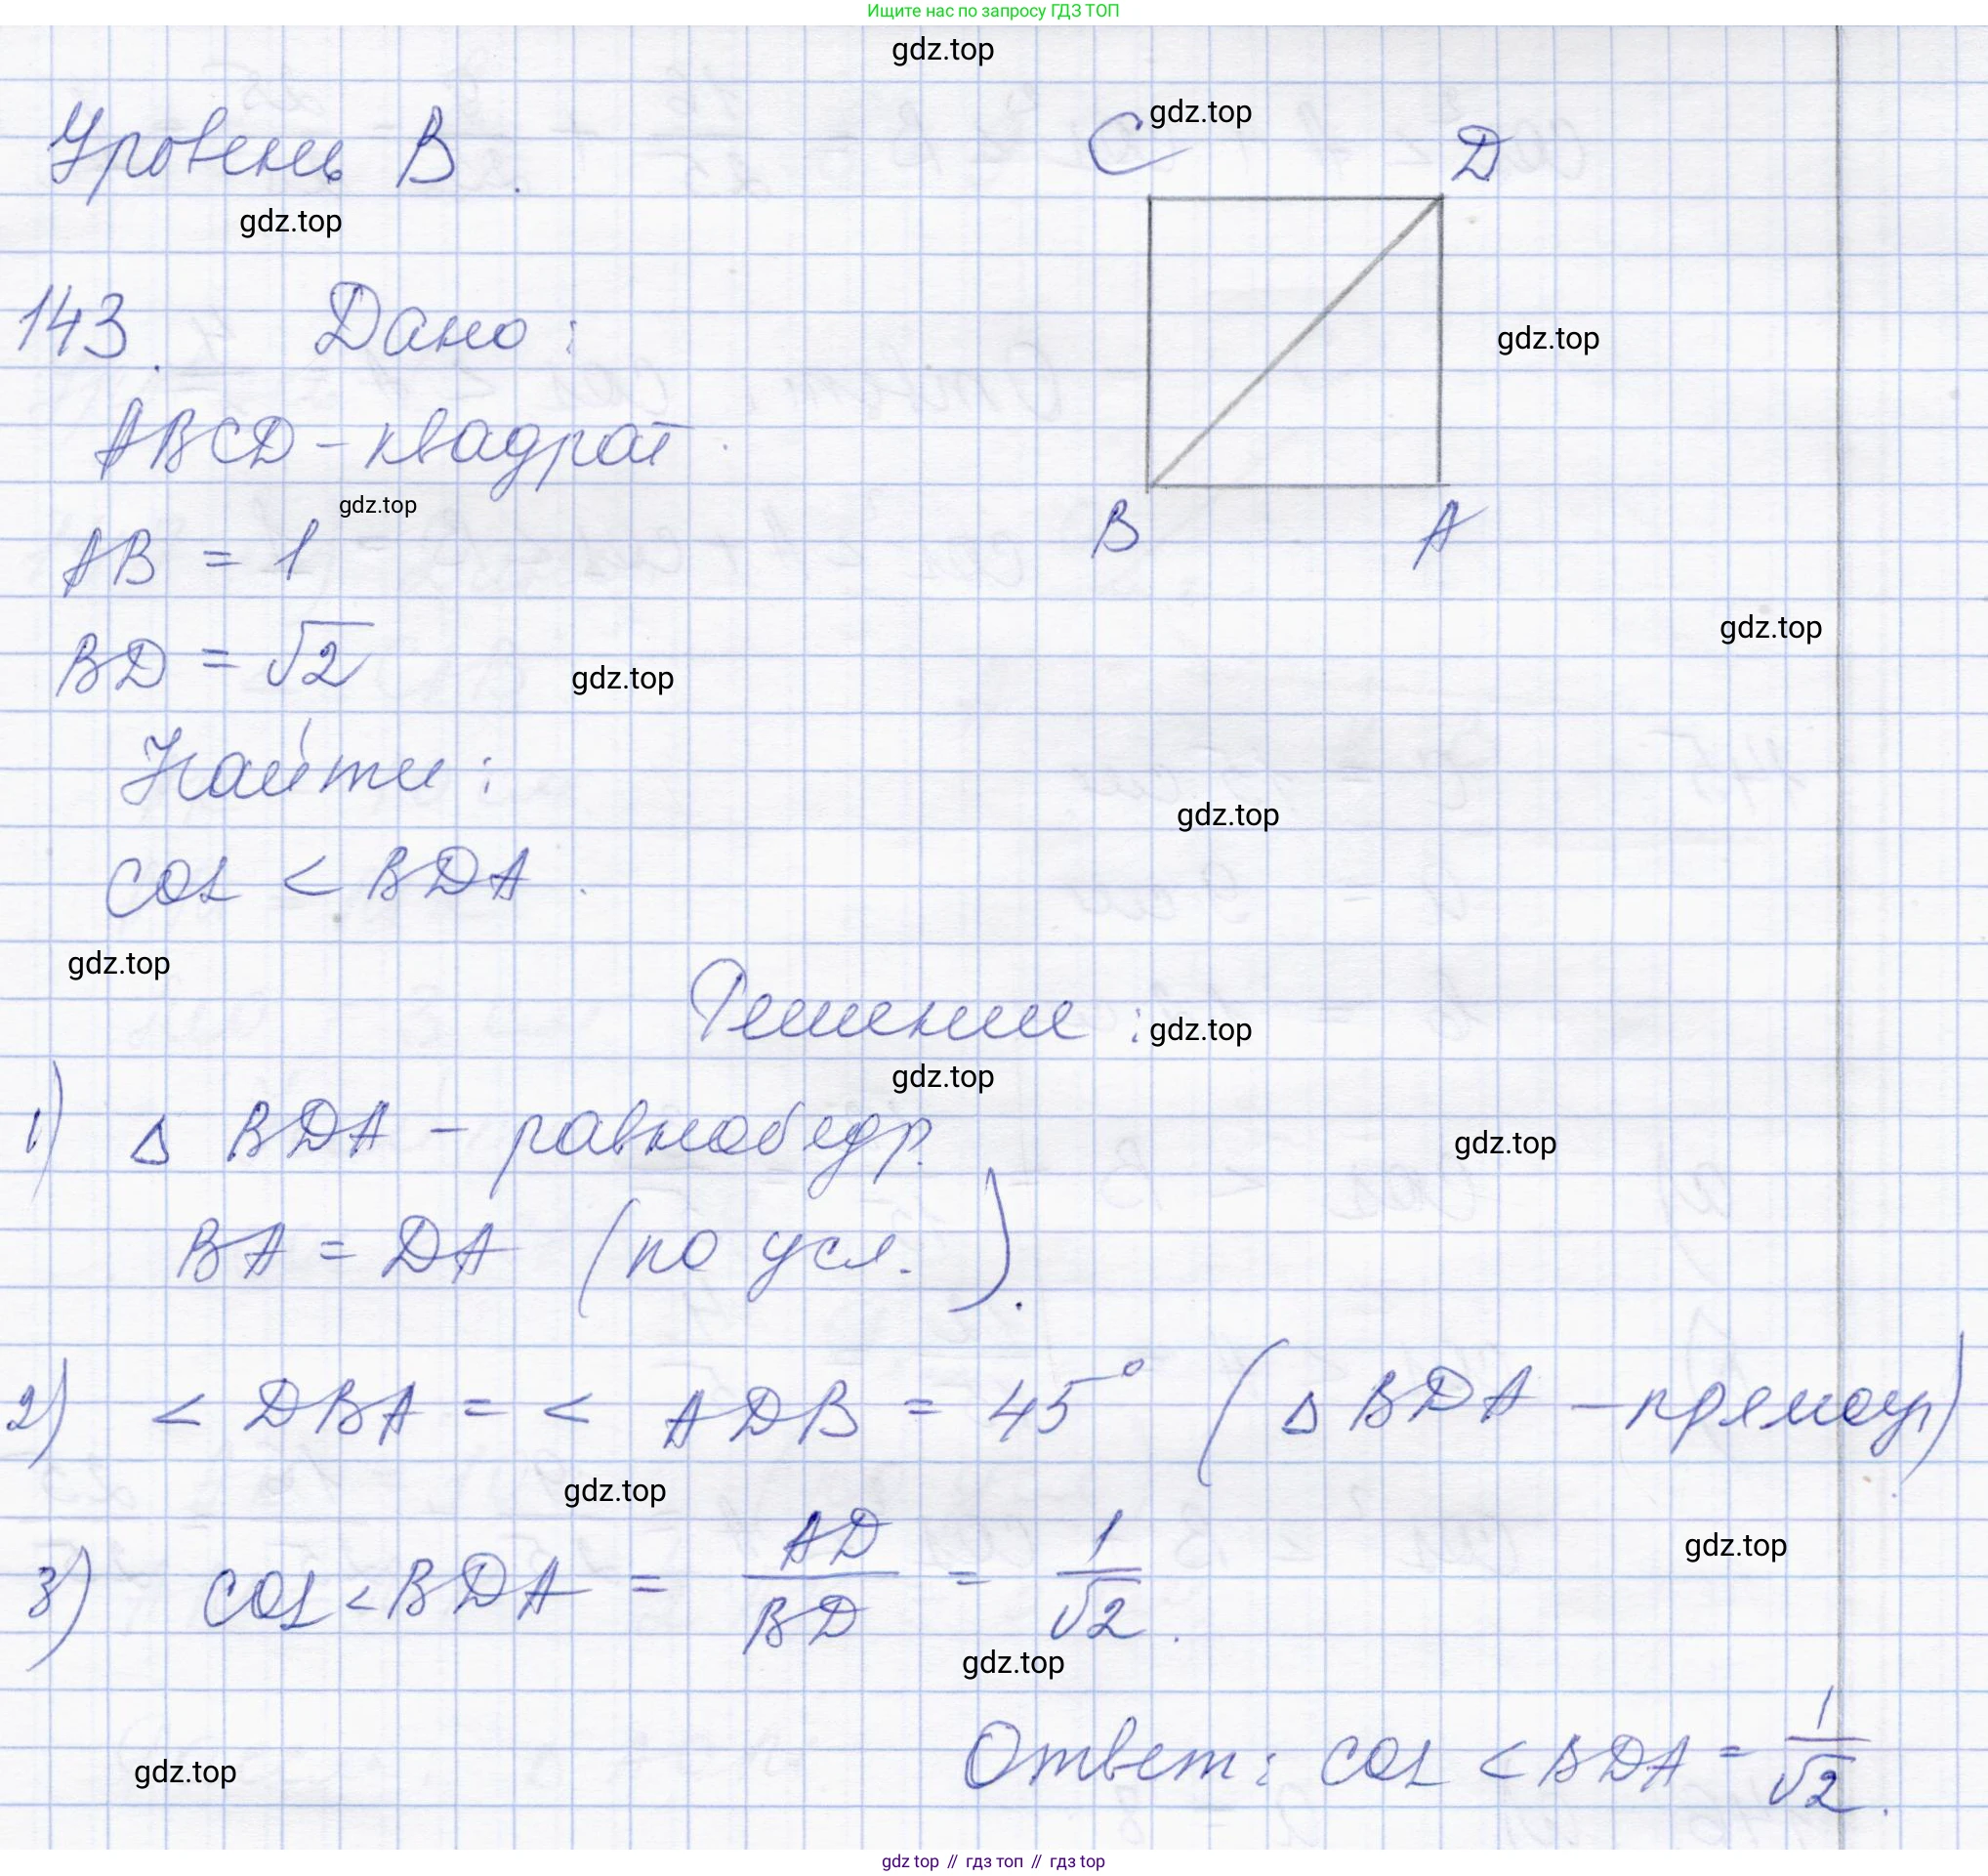 Ищите нас по запросу ГДЗ ТОП
gdz.top
Уровень В.
gdz.top
C gdz.top D
143. Дано:
gdz.top
ABCD - квадрат.
gdz.top
AB = 1
B A
gdz.top
BD = √2
gdz.top
Найти:
gdz.top
cos < BDA.
gdz.top
Решение: gdz.top
gdz.top
1) Δ BDA - равнобедр.
gdz.top
BA = DA (по усл.).
2) < DBA = < ADB = 45° (Δ BDA - прямоуг)
gdz.top
3) cos < BDA = AD/BD = 1/√2.
gdz.top
gdz.top
Ответ: cos < BDA = 1/√2.
gdz.top
gdz top // гдз топ // гдз top